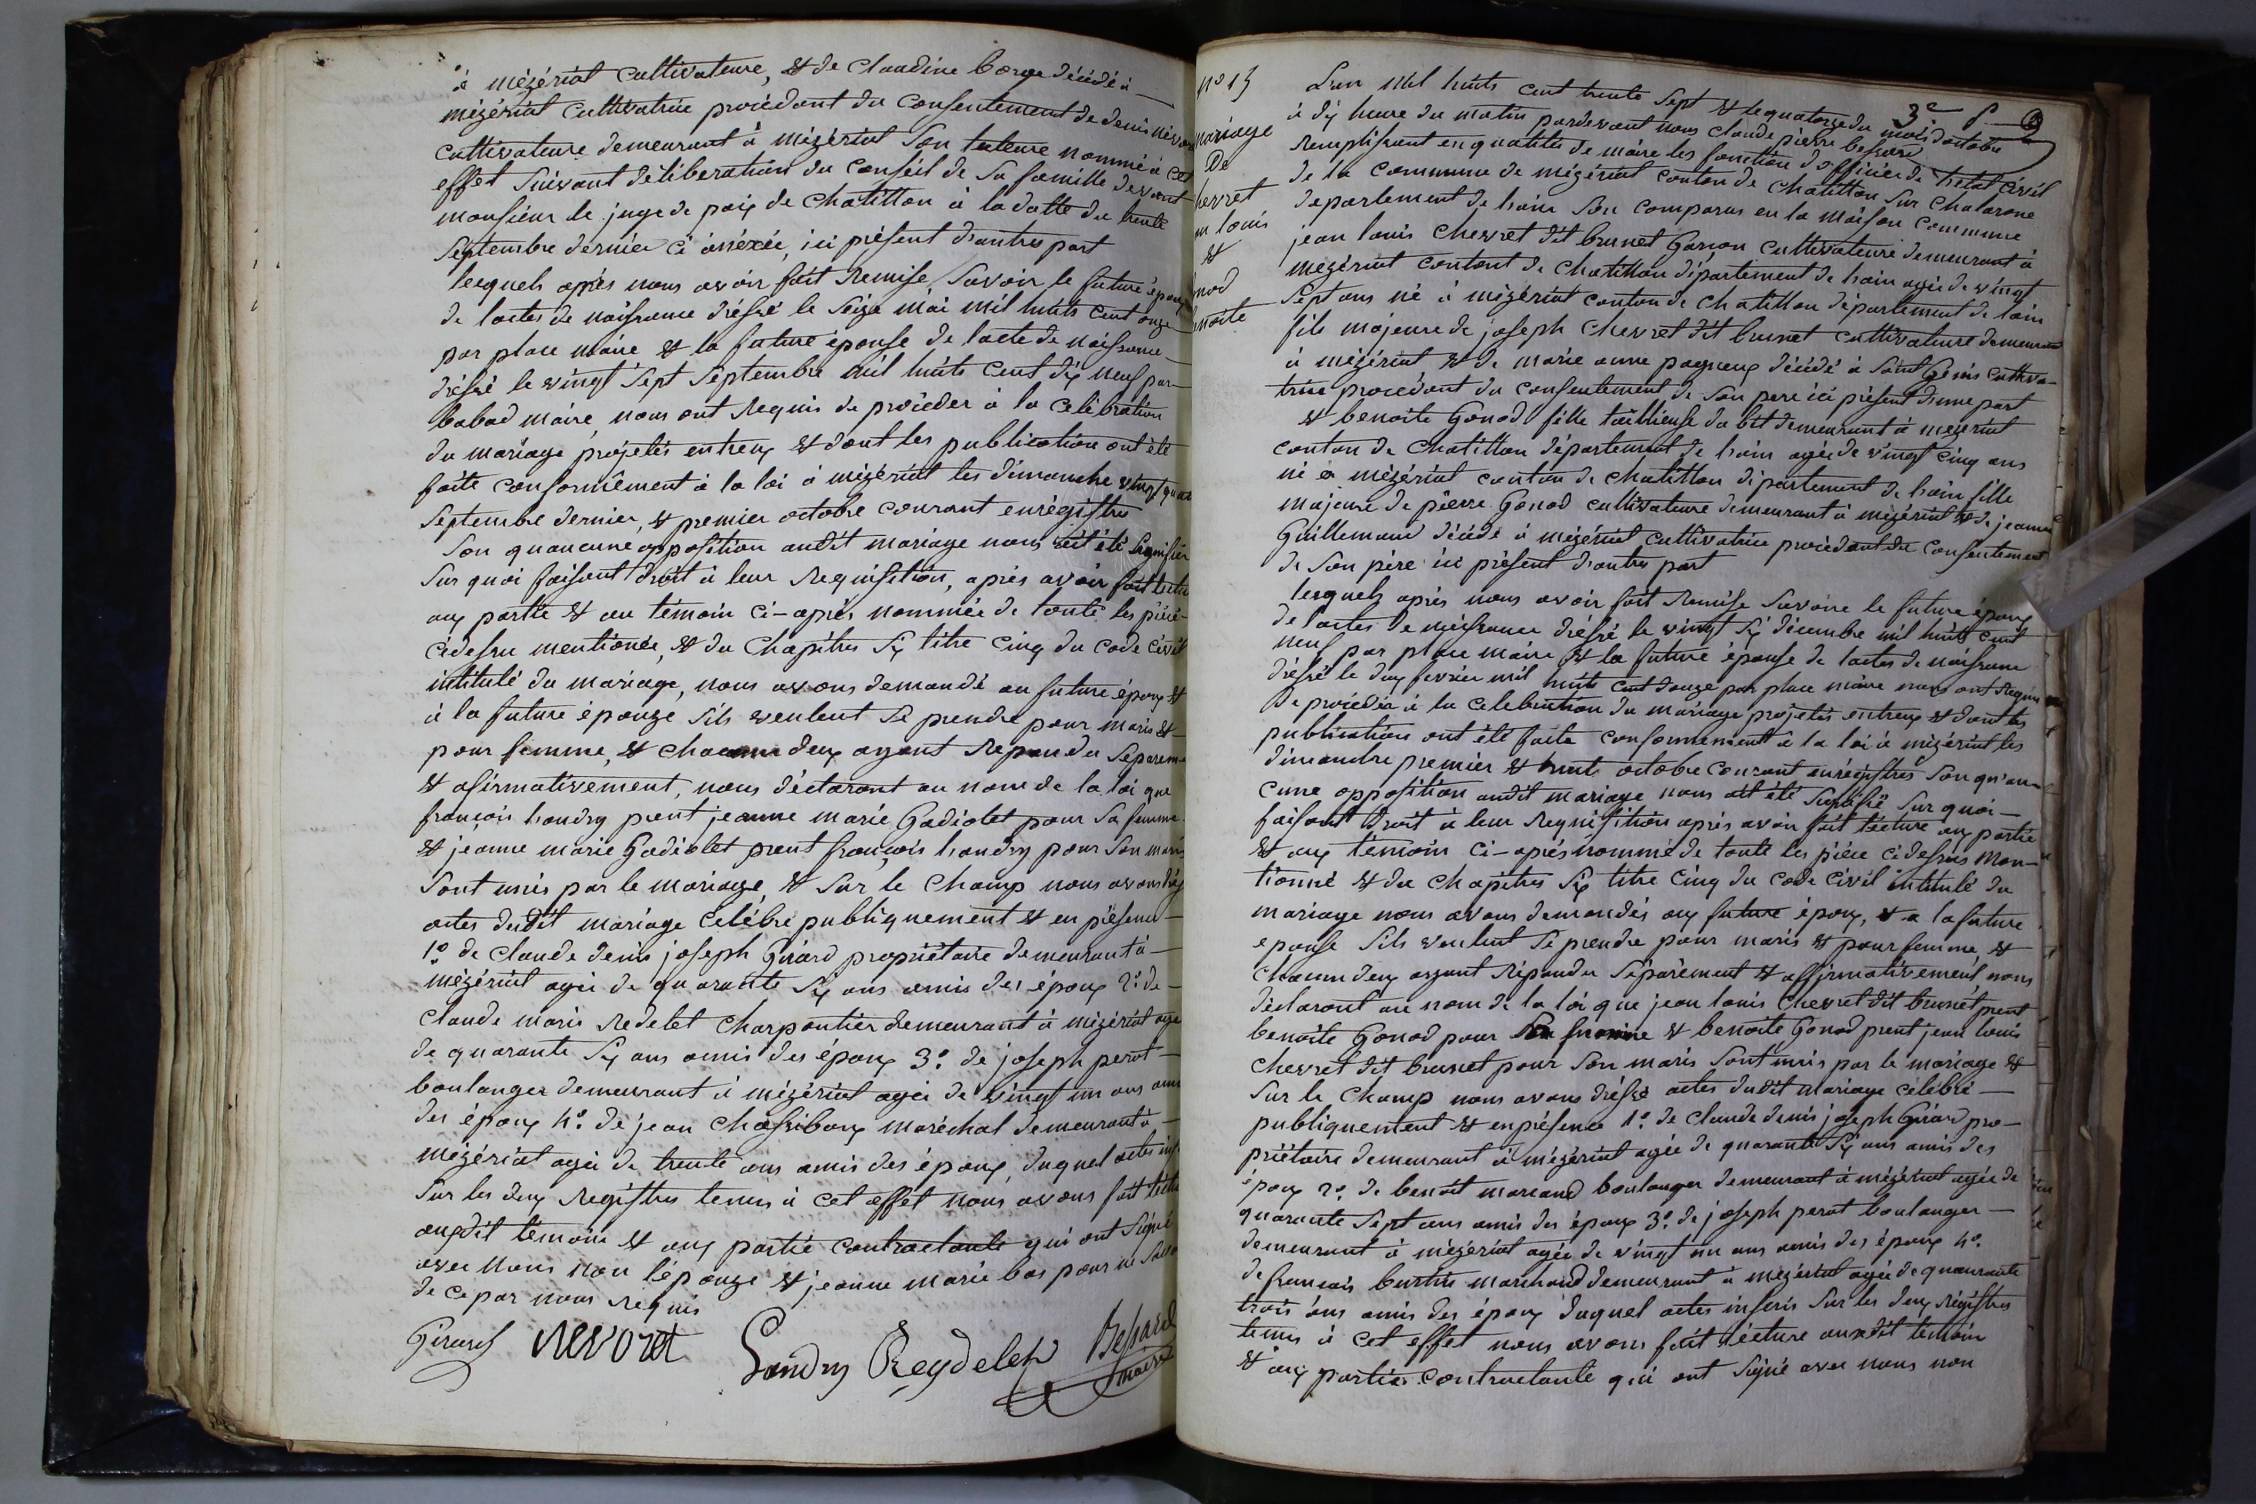 à mézériat cultivateure, & de Claudine borge décédé à
mézériat Cultivatrice procédant du Consentement de denis
cultivateure demeurant à mézériat Son tuteure nommé à cet
effet Suivant délibération du Conséil de Sa famille devant
monsieur le juge de paix de Chatillon à la datte du trente
Septembre dernier Ci ánéxée, ici présent d'autres part
lesquels après nous avoir fait Remise, Savoir le future épouy
de lactes de naissance dréssé le Seize mai mil huits cent onze
par place maire & la future épouse de lacte de naissance
dréssé le vingt Sept Septembre mil huits cent dix neuf par
babad maire, nous ont Requis de procéder à la Célébration
du mariage projetés entreux & dont les publication ont été
faite conformément à la loi à mézériat les dimanche vingt quatre
Septembre dernier, & premier octobre courant enrégistre
Son quaucune opposition audit mariage nous ait été Signifiée
Sur quoi faisant droit à leur Requisition, après avoir fait lecture
aux partie & au témoin ci-après nommée de toute les piéce
cidessu mentionée, & du Chapitres Six titre Cinq du code Civil
intitulé du mariage, nous avons demandé au future époux &
à la future épouze Sils veulent Se prendre pour maris &
pour femme, & chacune deux ayant Répondu Séparem
& afirmativement, nous déclaront au nom de la loi que
françois Landry prent jeanne marie Gadiolet pour Sa femme
& jeanne marie Gadiolet prent françois Landry pour Son maris
Sont unis par le mariage & Sur le Champ nous avons
actes dudit mariage célébré publiquement & en présence
1º de Claude denis joseph Girard propriétaire demeurant à
mézériat agée de quarante Six ans amis des époux 2º de
Claude marie Redelet Charpentier demeurant à mézériat agé
de quarante Six ans amis des époux 3º de joseph perot
boulanger demeurant à mézériat agée de vingt un ans amis
des époux 4º de jean Chassiboux maréchal demeurant à
mézériat agée de trente ans amis des époux, duquel actes
Sur les deux Registres tenus à cet effet nous avons fait lecture
auxdit témoin & aux partie contractante qui ont Signé
avec Nous non l'épouze & jeanne marie bas pour ne Savoir
de ce par nous Requis
Girard Nevoret Landry Reydelet Bessard
maire
nº 13
mariage
De
Chevret
louis
&
Gonod
benoite
3e f. 9
L'an Mil huits cent trente Sept & le quatorze du mois d'octobre
à dix heure du matin pardevant nous Claude pierre bessard
Remplissant en qualités de maire les fonction d'officier de l'état Civil
de la Commune de mézériat canton de Chatillon Sur Chalarone
département de Lain Son comparus en la Maison Commune
jean louis Chevret dit brunet Garçon Cultivateure demeurant à
mézériat contont de Chatillon département de Lain agée de vingt
Sept ans né à mézériat canton de Chatillon département de lain
fils majeure de joseph Chevret dit brunet cultivateure demeurant
à mézériat & de marie anne pagneux décédé à Saint Genis cultiva-
trice procédant du consentement de Son pere ici présent d'une part
& benoite Gonod fille taillieuse da bit demeurant à mézériat
canton de Chatillon département de Lain agée de vingt cinq ans
né à mézériat canton de Chatillon département de Lain fille
majeure de pierre Gonod cultivateure demeurant à mézériat & de jeanne
Guillemaud décédé à mézériat cultivatrice procédant du Consentement
de Son père ici présent d'autres part
lesquels après nous avoir fait Remise Savoire le future époux
de lactes de naissance dréssé le vingt Six décembre mil huits cent
neuf par place maire & la future épouse de lactes de naissance
dréssé le deux fevrier mil huits cent douze par place maire nous ont Requis
De procéder à la Celebration du mariage projetés entreux & dont les
publication ont été faite conformément à la loi à mézériat les
dimanche premier & huits octobre Courant enrégistres Son qu'au-
cune opposition audit mariage nous ait été Signifié Sur quoi
faisant Droit à leur Requisition après avoir fait lécture aux partie
& aux témoin ci-après nommé de toute les piéce ci dessus Men-
tionné & du Chapitres Six titre Cinq du Code Civil intitulé du
mariage nous avons demandés aux future époux, & a la future
épouse Sils veulent Se prendre pour maris & pour femme, &
Chacun deux ayant Répondu Séparément & affirmativement, nous
déclaront au nom de la loi que jean louis Chevret dit brunet prent
benoite Gonod pour Sa femme & benoite Gonod prent jean louis
Chevret dit brunet pour Son maris Sont unis par le mariage &
Sur le Champ nous avons dréssé actes dudit Mariage célébré
publiquement & en présence 1º de Claude denis joseph Girard pro-
priétaire demeurant à mézériat agée de quarante Six ans amis des
époux 2º de benoit marcand boulanger demeurant à mézériat agée de
quarante Sept ans amis des époux 3º de joseph perot boulanger
demeurant à mézériat agée de vingt un ans amis des époux 4º
de francois marchand demeurant à mézériat agée de quaurante
trois ans amis des époux duquel actes inscris Sur les deux Régistres
tenus à cet effet nous avons fait lécture auxdit témoin
& aux parties contractante qui ont Signé avec nous non